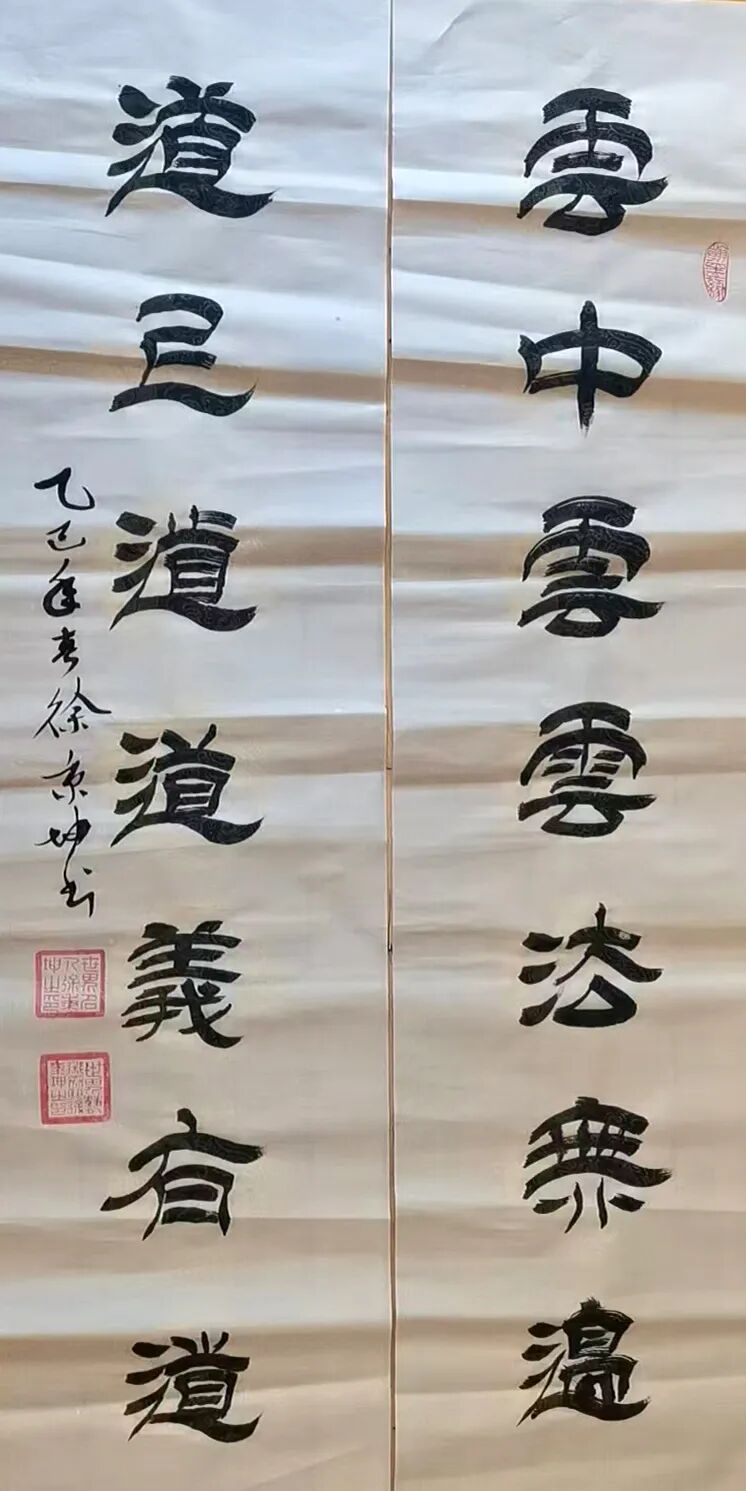 雲中雲雲法無邊
道己道道義有道
乙巳年春徐京坤書